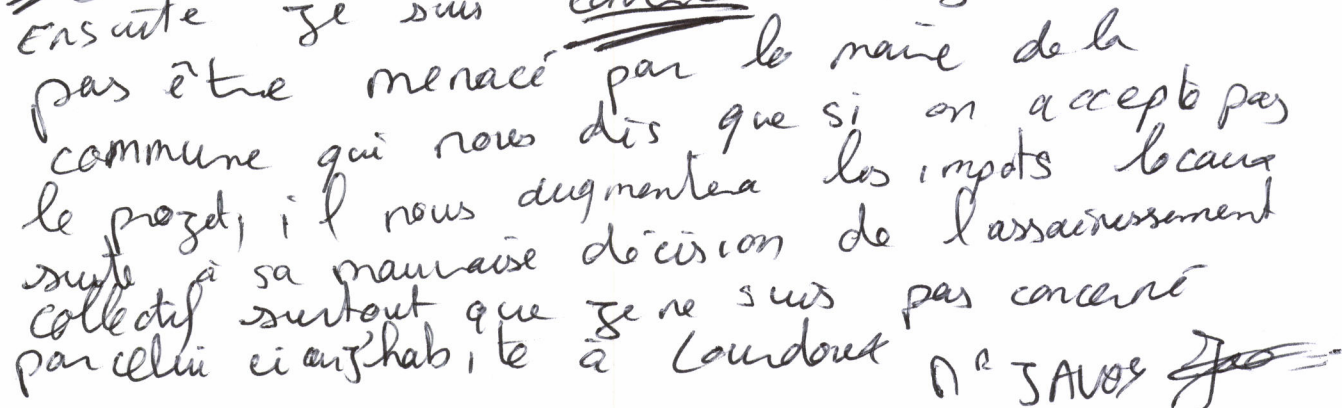 Ensuite je suis
pas être menacé par le maire de la
commune qui nous dis que si on accepte pas
le projet, il nous augmentera les impots locaux
suite à sa mauvaise décision de l'assainissement
collectif surtout que je ne suis pas concerné
par celui ci car j'habite à Lourdoueix
Mr JAVOY